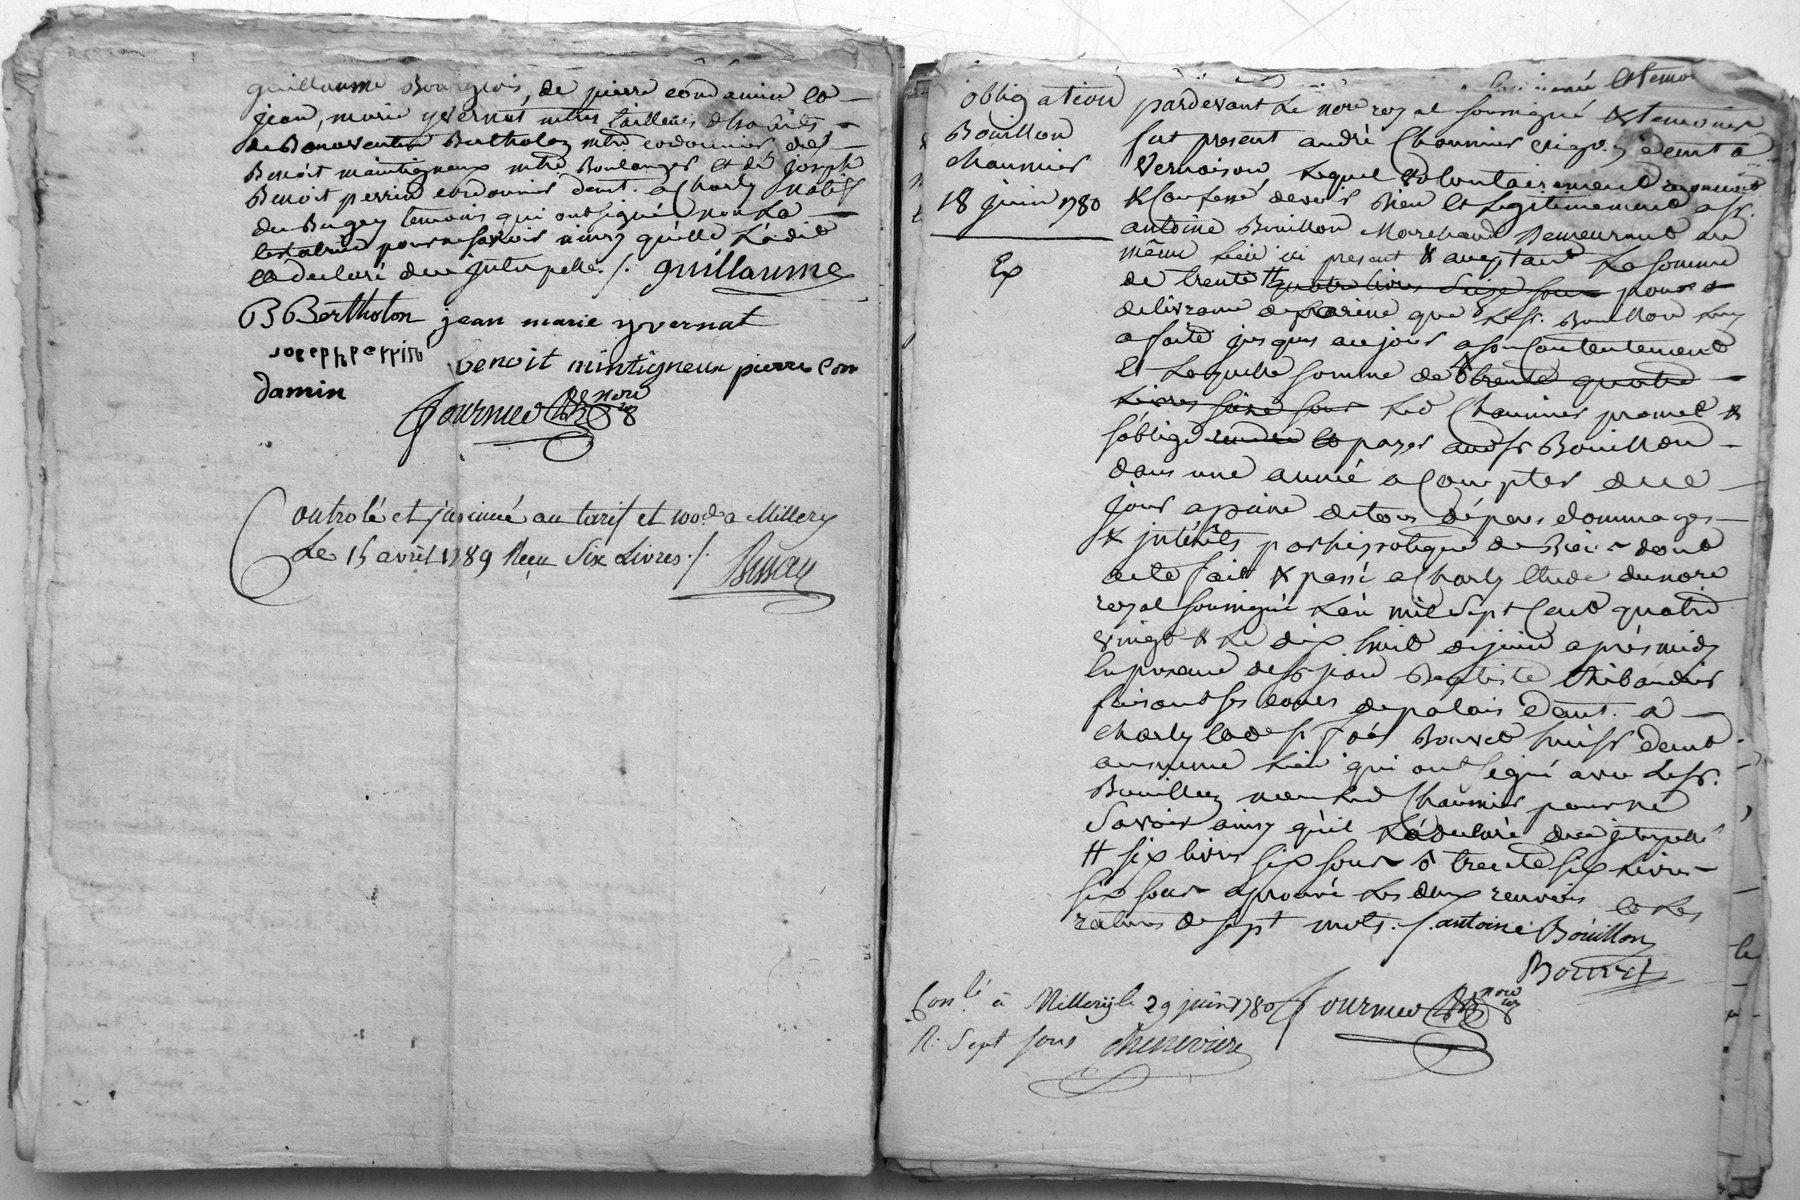 guillaume Bourgeois, de pierre condamin et
jean, marie yvernat mtres tailleurs d'habits
de Bonaventure Bertholon mtre cordonnier de
Benoit maintigneux mtre Boulanger et de joseph
Benoit perrin cordonnier demt. a Charly natif
du Bugey temoins qui ont signé non la
testatrice pour ne savoir ainsy qu'elle l'a dit
et declaré de ce jnterpellé ./. guillaume
B Bertholon jean marie yvernat
joseph perrin benoit mintigneux pierre Con
damin
fournier nore
Controlé et jnsinué au tarif et 100.e a Millery
Le 15 avril 1789 Reçu Six Livres ./.
obligation
Bouillon
chaumier
18 juin 1780
Ex
pardevant Le nore royal soussigné & temoins
fut present andré Chaumier demt a
Vernaison Lequel volontairement reconnoit
& Confesse devoir Bien et Legitimement a sr.
antoine Bouillon Marchand Demeurant au
même Lieu ici present & aceptant La somme
de trente # quatre livres Seize sous pour
delivrance de farine que Led. sr. Bouillon luy
a faite jusques au jour a son Contentement
Et Laquelle somme de trente quatre
Livres seize sous Led Chaumier promet &
s'oblige rendre et payer aud sr Bouillon
dans une année a Compter de ce
jour a peine de tous dépens dommages
& jntérêts par hipoteque de Biens dont
acte fait & passé a Charly Etude du nore
royal soussigné L'an mil Sept Cent quatre
vingt & Le dix huit de juin après midy
En presence de sr jean Baptiste thibaudier
faisant ses cours de palais demt. a
Charly et de sr Bouvet huissr demt
au meme Lieu qui ont signé avec Led sr.
Bouillon non Led Chaumier pour ne
Savoir ainsy qu'il L'a declaré de ce jnterpellé
# six livres six sous δ trente six Livres
six sous aprouvé Les deux renvois et Les
ratures de sept mots ./. antoine Bouillon
Bouvet
Conlé à Millery le 29 juin 1780 fournier nore
R. Sept sous Cheneviere